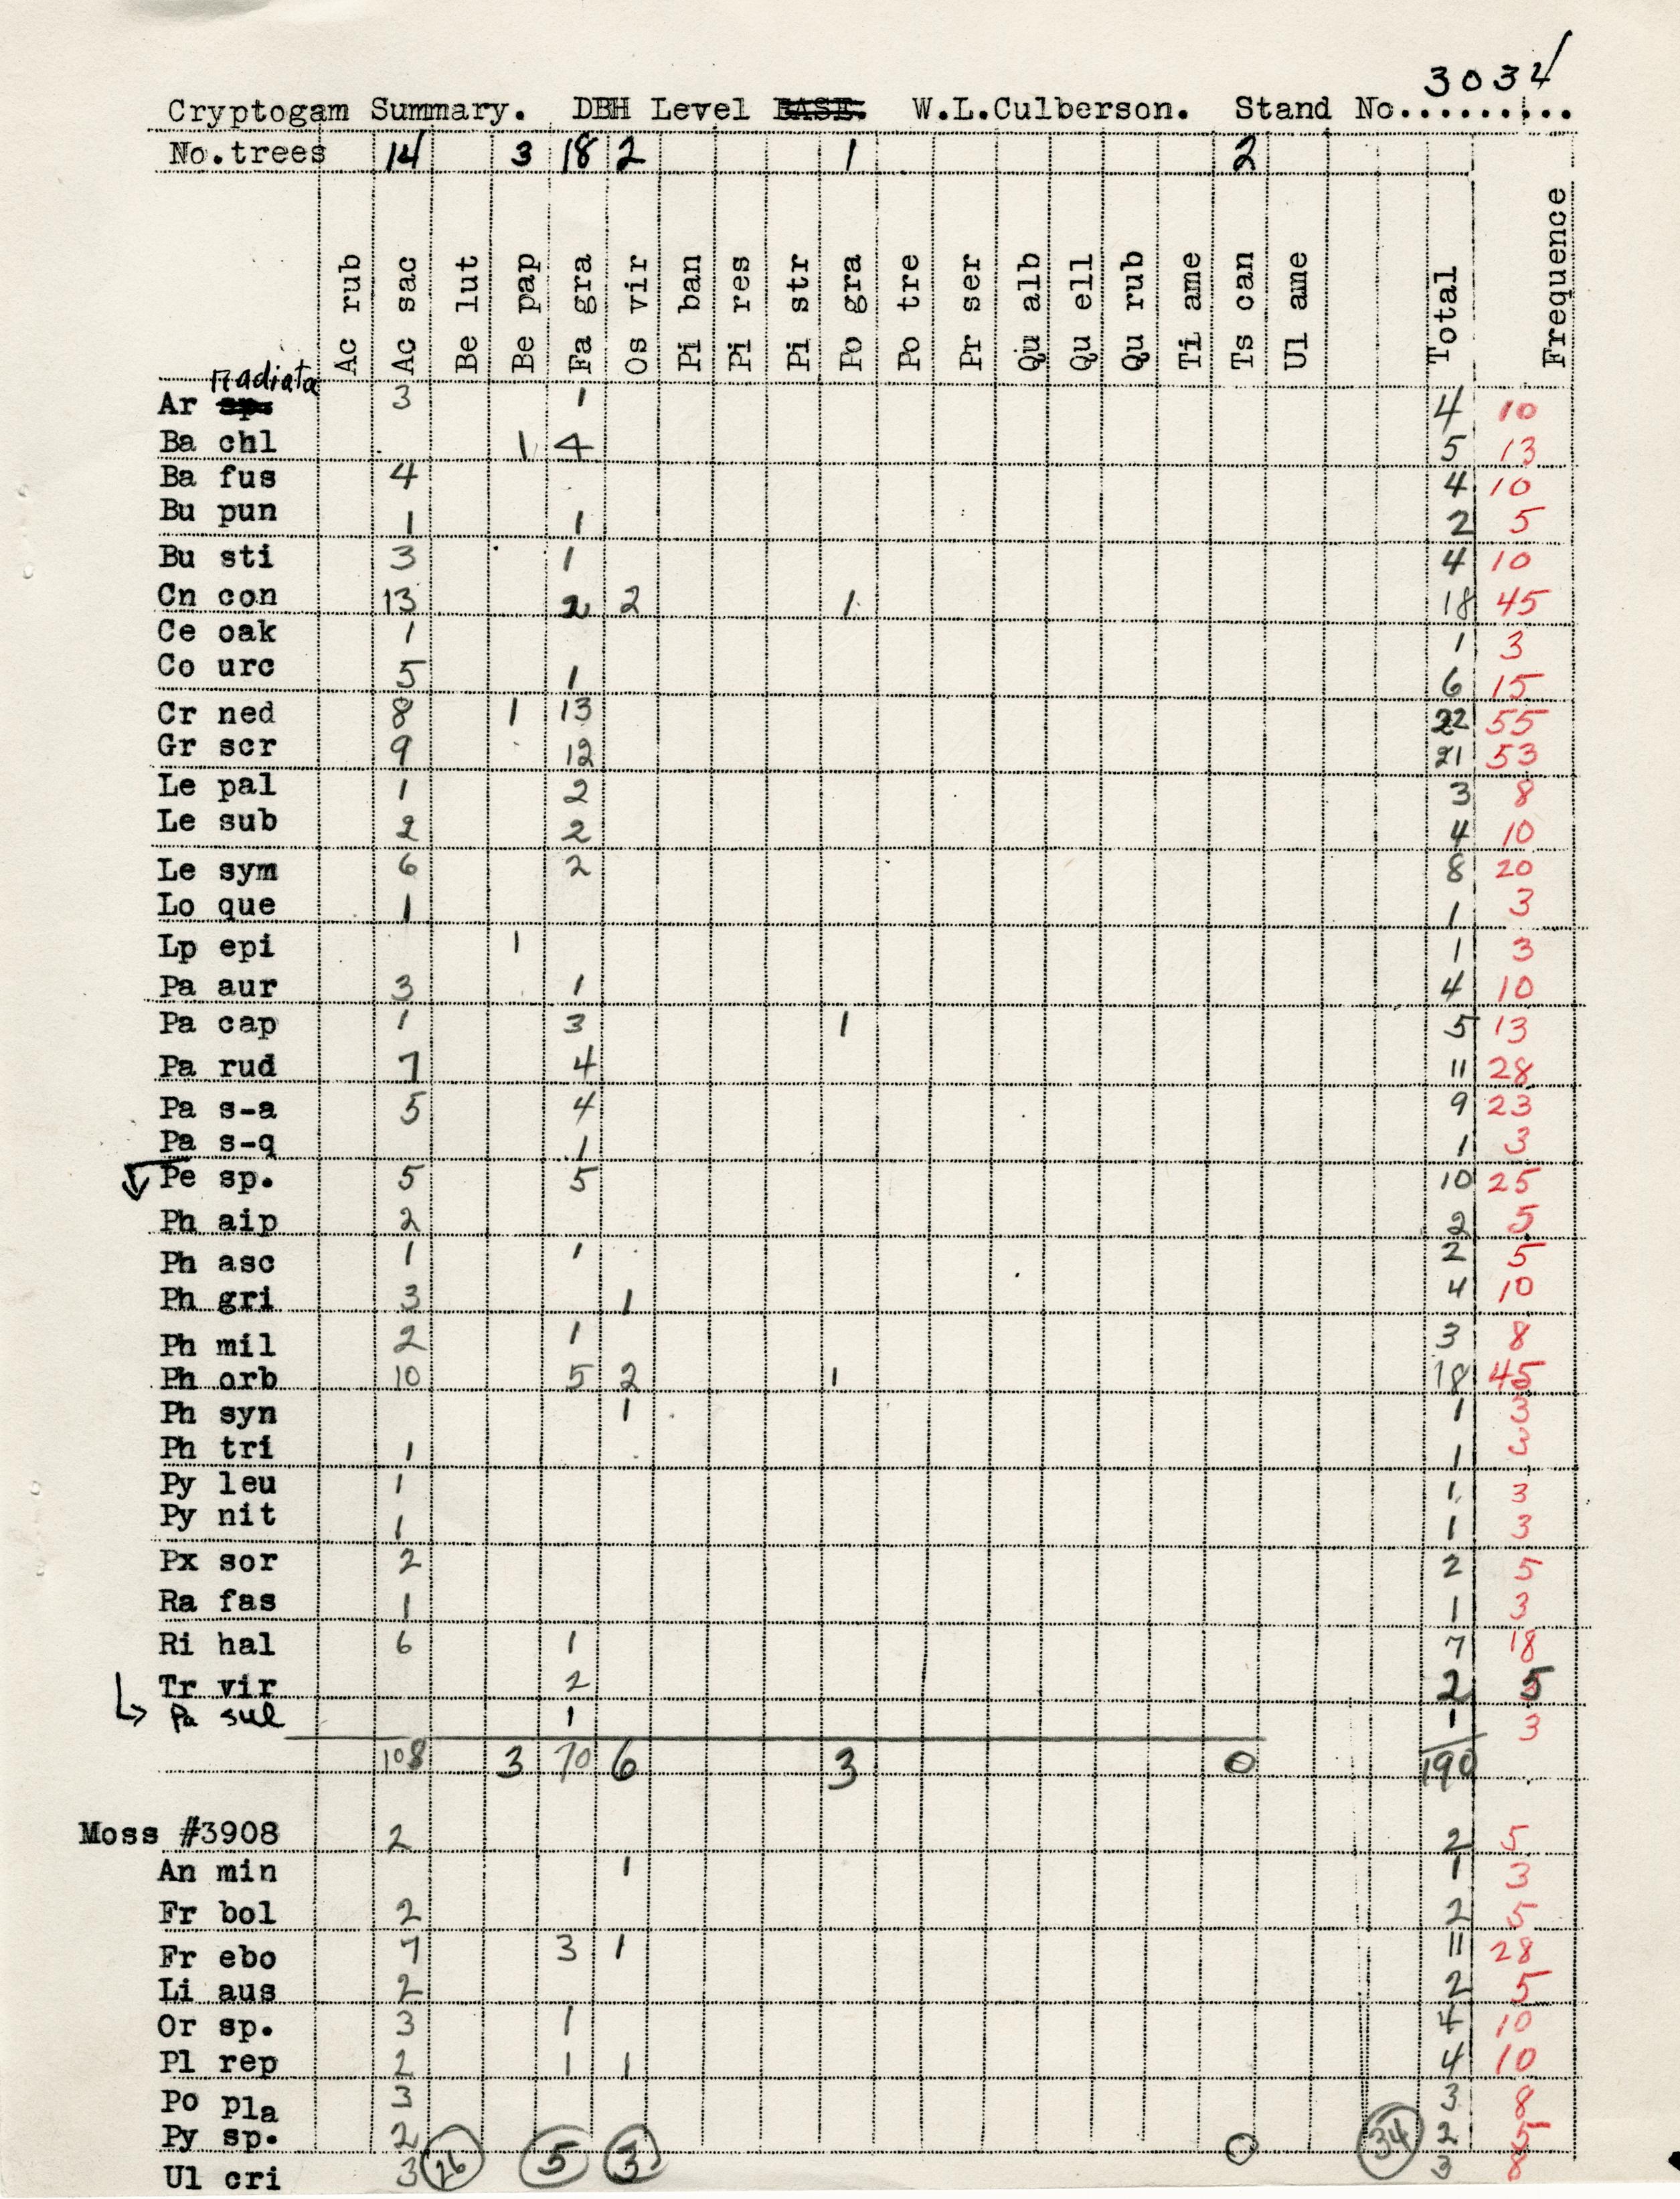 3034
Cryptogam Summary. DBH Level BASE. W.L.Culberson. Stand No..........
No.trees 14 3 18 2 1 2
Ac rub Ac sac Be lut Be pap Fa gra Os vir Pi ban Pi res Pi str Po gra Po tre Pr ser Qu alb Qu ell Qu rub Ti ame Ts can Ul ame Total Frequence
radiata
Ar sp. 3 1 4 10
Ba chl 1 4 5 13
Ba fus 4 4 10
Bu pun 1 1 2 5
Bu sti 3 1 4 10
Cn con 13 2 2 1 18 45
Ce oak 1 1 3
Co urc 5 1 6 15
Cr ned 8 1 13 22 55
Gr scr 9 12 21 53
Le pal 1 2 3 8
Le sub 2 2 4 10
Le sym 6 2 8 20
Lo que 1 1 3
Lp epi 1 1 3
Pa aur 3 1 4 10
Pa cap 1 3 1 5 13
Pa rud 7 4 11 28
Pa s-a 5 4 9 23
Pa s-q 1 1 3
Pe sp. 5 5 10 25
Ph aip 2 2 5
Ph asc 1 1 2 5
Ph gri 3 1 4 10
Ph mil 2 1 3 8
Ph orb 10 5 2 1 18 45
Ph syn 1 1 3
Ph tri 1 1 3
Py leu 1 1 3
Py nit 1 1 3
Px sor 2 2 5
Ra fas 1 1 3
Ri hal 6 1 7 18
Tr vir 2 2 5
Pa sul 1 1 3
108 3 70 6 3 0 190
Moss #3908 2 2 5
An min 1 1 3
Fr bol 2 2 5
Fr ebo 7 3 1 11 28
Li aus 2 2 5
Or sp. 3 1 4 10
Pl rep 2 1 1 4 10
Po pla 3 3 8
Py sp. 2 26 5 3 0 34 2 5
Ul cri 3 3 8